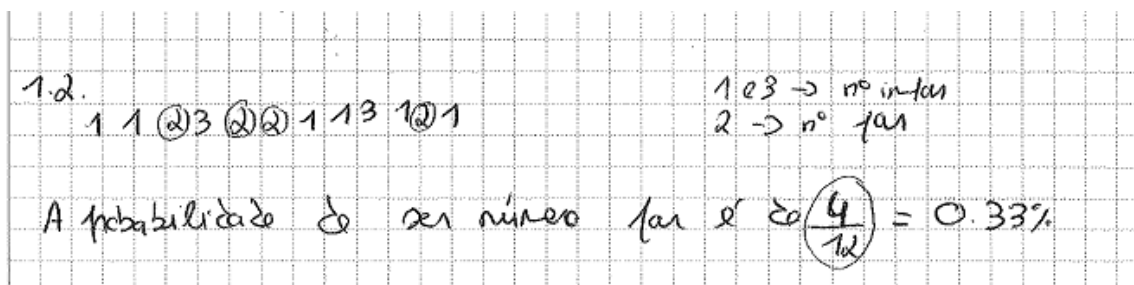 1.2.
1 1 2 3 2 2 1 1 3 1 2 1
1 e 3 → nº impar
2 → nº par
A probabilidade de ser número par é de 4/12 = 0.33%